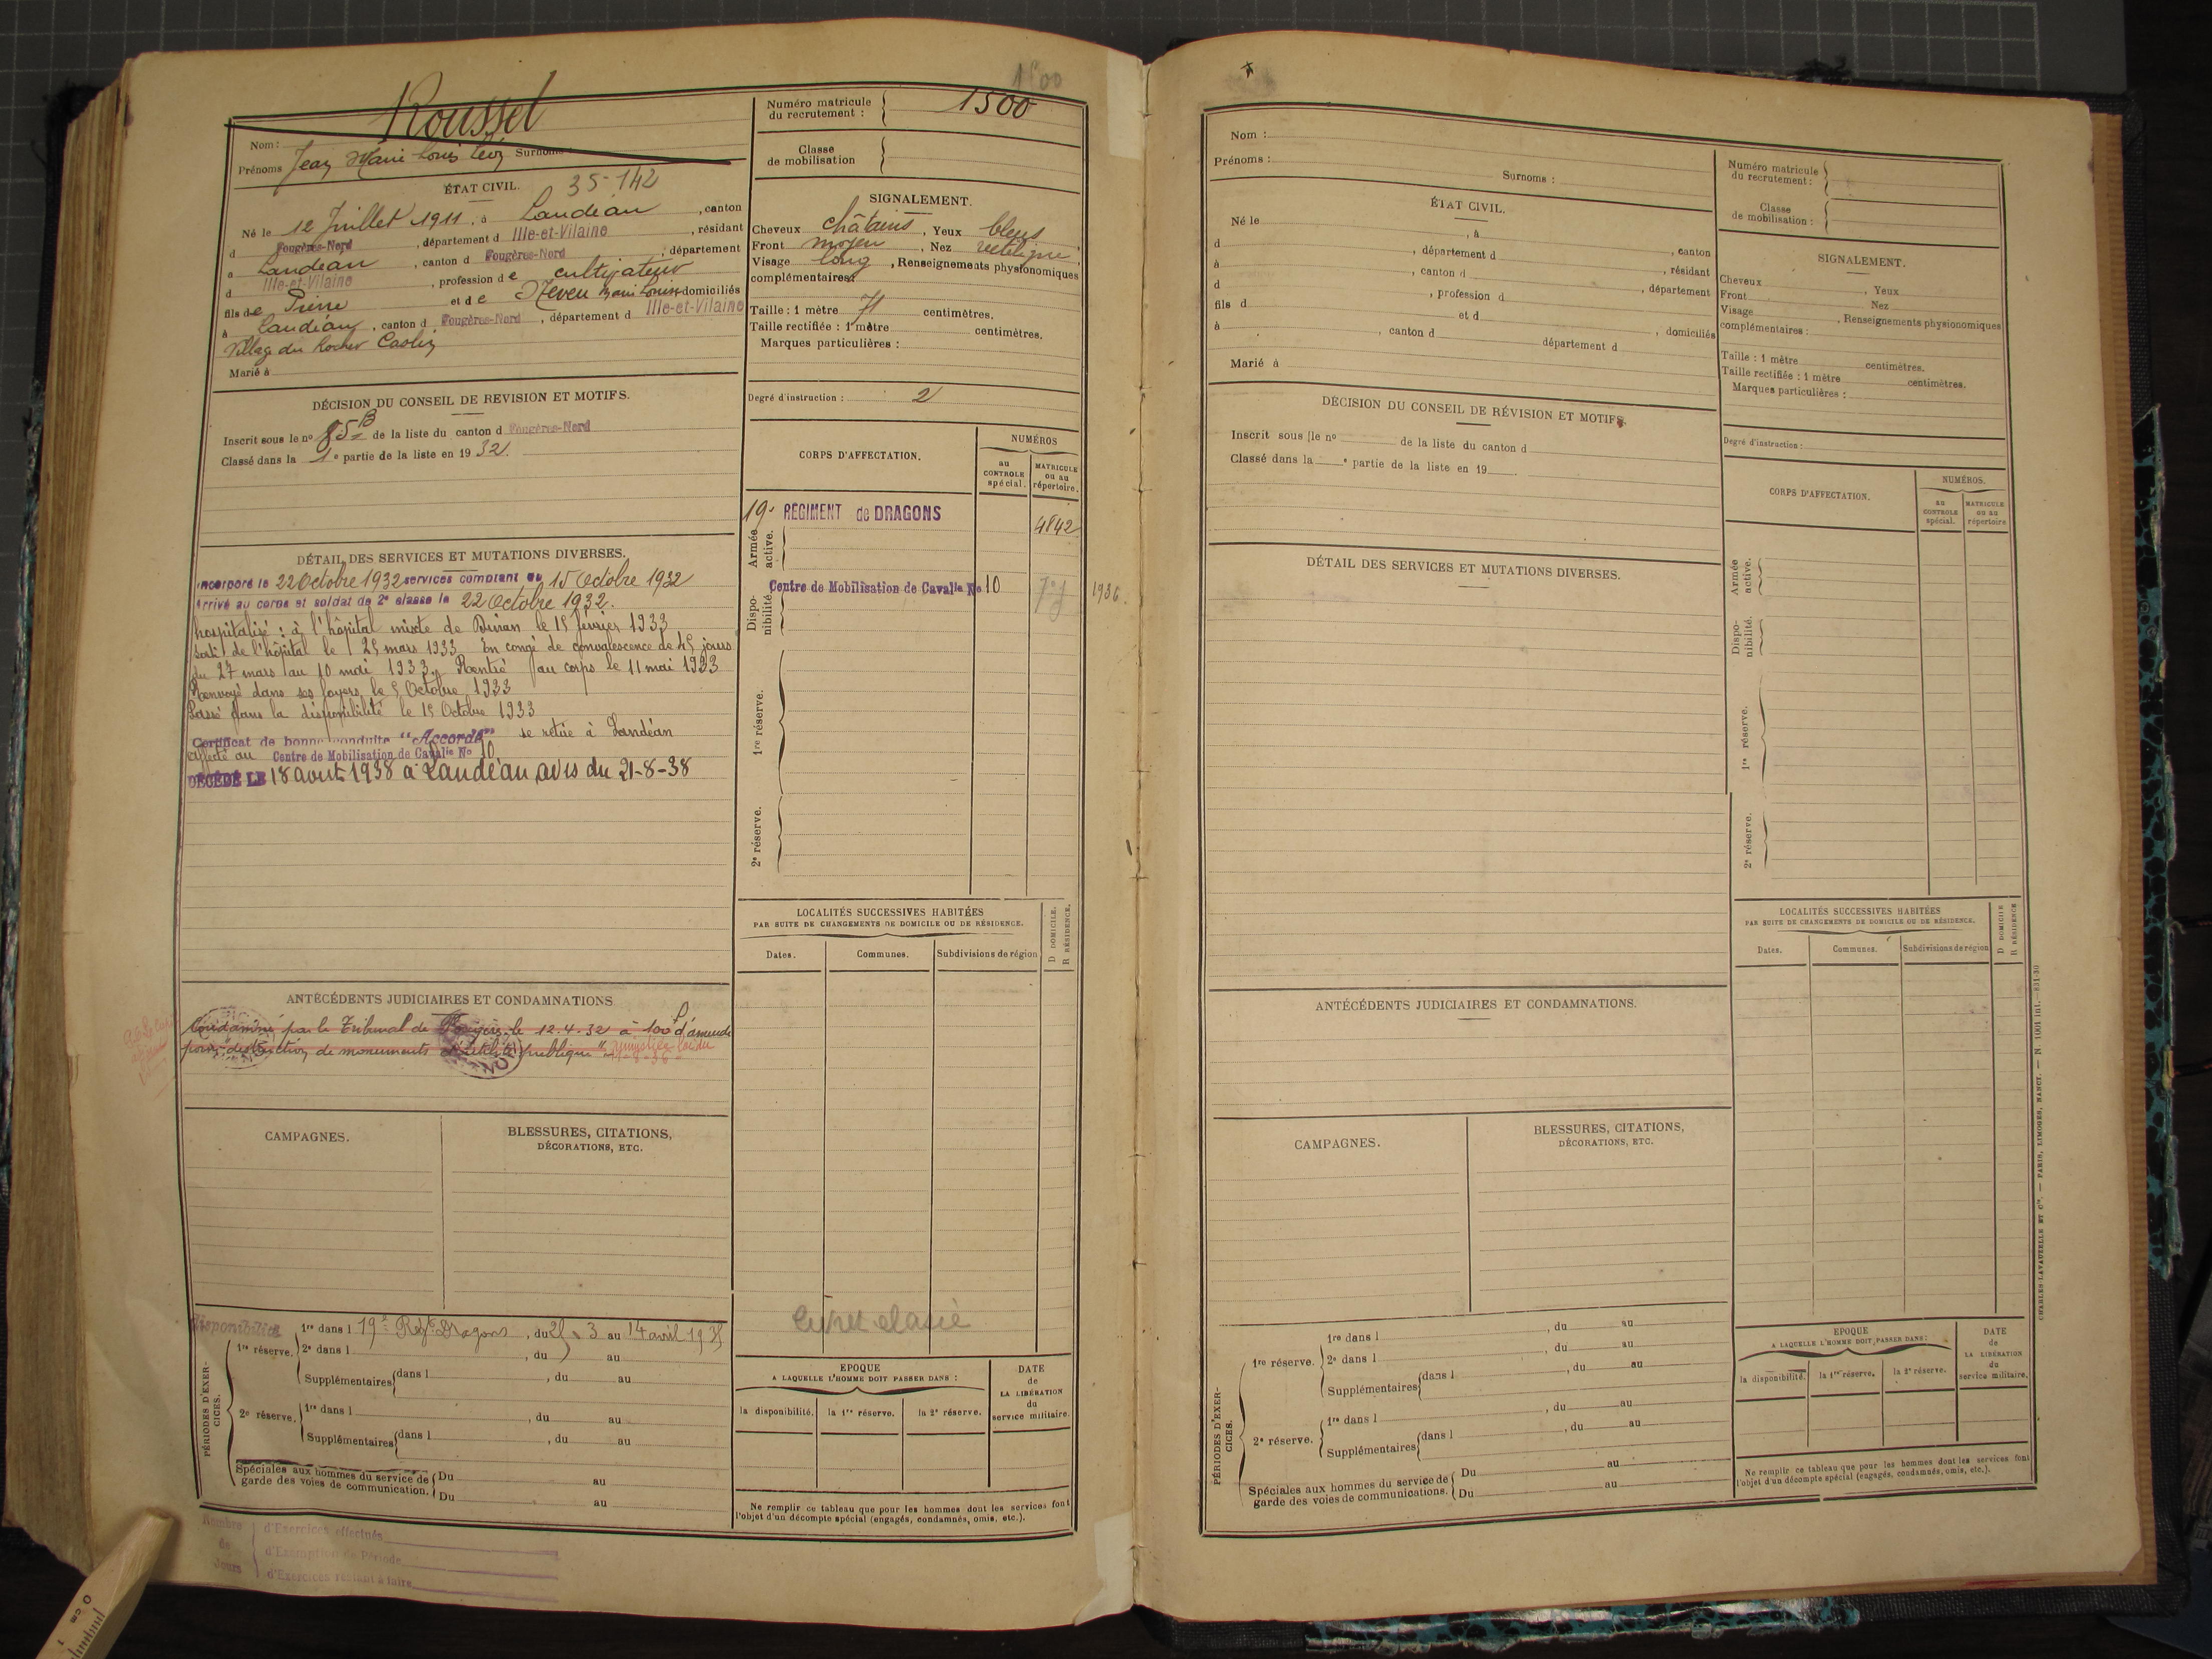 1500
Roussel
Nom :
Prénoms Jean Marie Louis Léon Surnoms :
Numéro matricule
du recrutement :
1500
Classe
de mobilisation
ÉTAT CIVIL.
35-142
Né le 12 Juillet 1911, à Landéan, canton
d Fougères-Nord, département d Ille-et-Vilaine, résidant
à Landéan, canton d Fougères-Nord, département
d Ille-et-Vilaine, profession de cultivateur
fils de Pierre et de Neveu Marie Louise domiciliés
à Landéan, canton d Fougères-Nord, département d Ille-et-Vilaine
Village du Rocher
Marié à
SIGNALEMENT.
Cheveux châtains, Yeux bleus,
Front moyen, Nez rectiligne,
Visage long, Renseignements physionomiques
complémentaires:
Taille : 1 mètre 71 centimètres.
Taille rectifiée : 1 mètre centimètres.
Marques particulières :
Degré d'instruction : 2
DÉCISION DU CONSEIL DE REVISION ET MOTIFS.
Inscrit sous le no 85 B de la liste du canton d Fougères-Nord
Classé dans la 1e partie de la liste en 1932.
CORPS D'AFFECTATION.
NUMÉROS
au
CONTROLE
spécial.
MATRICULE
ou au
répertoire.
Armée
active.
19e RÉGIMENT de DRAGONS
4842
Dispo-
nibilité.
Centre de Mobilisation de Cavalie No 10
1936.
1re réserve.
2e réserve.
DÉTAIL DES SERVICES ET MUTATIONS DIVERSES.
Incorporé le 22 Octobre 1932 services comptant du 15 Octobre 1932
Arrivé au corps et soldat de 2e classe le 22 Octobre 1932.
hospitalisé : à l'hôpital mixte de Dinan le 15 février 1933
Sorti de l'hôpital le 25 mars 1933 En congé de convalescence de 45 jours
du 27 mars au 10 mai 1933. Rentré au corps le 11 mai 1933
Renvoyé dans ses foyers le 5 Octobre 1933
Passé dans la disponibilité le 15 Octobre 1933
Certificat de bonne conduite "Accordé" se retire à Landéan
Affecté au Centre de Mobilisation de Cavalie No 10
DÉCÉDÉ LE 18 août 1938 à Landéan, avis du 21-8-38
LOCALITÉS SUCCESSIVES HABITÉES
PAR SUITE DE CHANGEMENTS DE DOMICILE OU DE RÉSIDENCE.
D DOMICILE.
R RÉSIDENCE.
Dates.
Communes.
Subdivisions de région
ANTÉCÉDENTS JUDICIAIRES ET CONDAMNATIONS
Condamné par le Tribunal de Fougères le 12.4.32 à 100 f d'amende
pour "destruction de monuments d'utilité publique" amnistié loi du
CAMPAGNES.
BLESSURES, CITATIONS,
DÉCORATIONS, ETC.
Livret classé
Disponibilité
PÉRIODES D'EXER-
CICES.
1re dans l 19e Regt Dragons, du 25.3 au 14 avril 1935
1re réserve. 2e dans l , du au
Supplémentaires dans l , du au
2e réserve. 1re dans l , du au
Supplémentaires dans l , du au
Spéciales aux hommes du service de
garde des voies de communication.
Du au
Du au
EPOQUE
A LAQUELLE L'HOMME DOIT PASSER DANS :
la disponibilité.
la 1re réserve.
la 2e réserve.
DATE
de
LA LIBÉRATION
du
service militaire.
Ne remplir ce tableau que pour les hommes dont les services font
l'objet d'un décompte spécial (engagés, condamnés, omis, etc.).
Nombre
de
Jours
d'Exercices effectués
d'Exemption de Période
d'Exercices restant à faire
0 cm 1
Nom :
Prénoms :
Surnoms :
Numéro matricule
du recrutement :
Classe
de mobilisation :
ÉTAT CIVIL.
Né le , à , canton
d , département d , résidant
à , canton d , département
d , profession d
fils d et d , domiciliés
à , canton d département d
Marié à
SIGNALEMENT.
Cheveux , Yeux
Front Nez
Visage , Renseignements physionomiques
complémentaires :
Taille : 1 mètre centimètres.
Taille rectifiée : 1 mètre centimètres.
Marques particulières :
Degré d'instruction :
DÉCISION DU CONSEIL DE RÉVISION ET MOTIFS.
Inscrit sous le no de la liste du canton d
Classé dans la e partie de la liste en 19
CORPS D'AFFECTATION.
NUMÉROS.
au
CONTROLE
spécial.
MATRICULE
ou au
répertoire
Armée
active.
Dispo-
nibilité.
1re réserve.
2e réserve.
DÉTAIL DES SERVICES ET MUTATIONS DIVERSES.
LOCALITÉS SUCCESSIVES HABITÉES
PAR SUITE DE CHANGEMENTS DE DOMICILE OU DE RÉSIDENCE.
D DOMICILE
R RÉSIDENCE
Dates.
Communes.
Subdivisions de région
ANTÉCÉDENTS JUDICIAIRES ET CONDAMNATIONS.
CAMPAGNES.
BLESSURES, CITATIONS,
DÉCORATIONS, ETC.
PÉRIODES D'EXER-
CICES.
1re dans l , du au
1re réserve. 2e dans l , du au
Supplémentaires dans l , du au
2e réserve. 1re dans l , du au
Supplémentaires dans l , du au
Spéciales aux hommes du service de
garde des voies de communications.
Du au
Du au
EPOQUE
A LAQUELLE L'HOMME DOIT PASSER DANS :
la disponibilité.
la 1re réserve.
la 2e réserve.
DATE
de
LA LIBÉRATION
du
service militaire.
Ne remplir ce tableau que pour les hommes dont les services font
l'objet d'un décompte spécial (engagés, condamnés, omis, etc.).
CHARLES-LAVAUZELLE ET Cie. — PARIS, LIMOGES, NANCY.